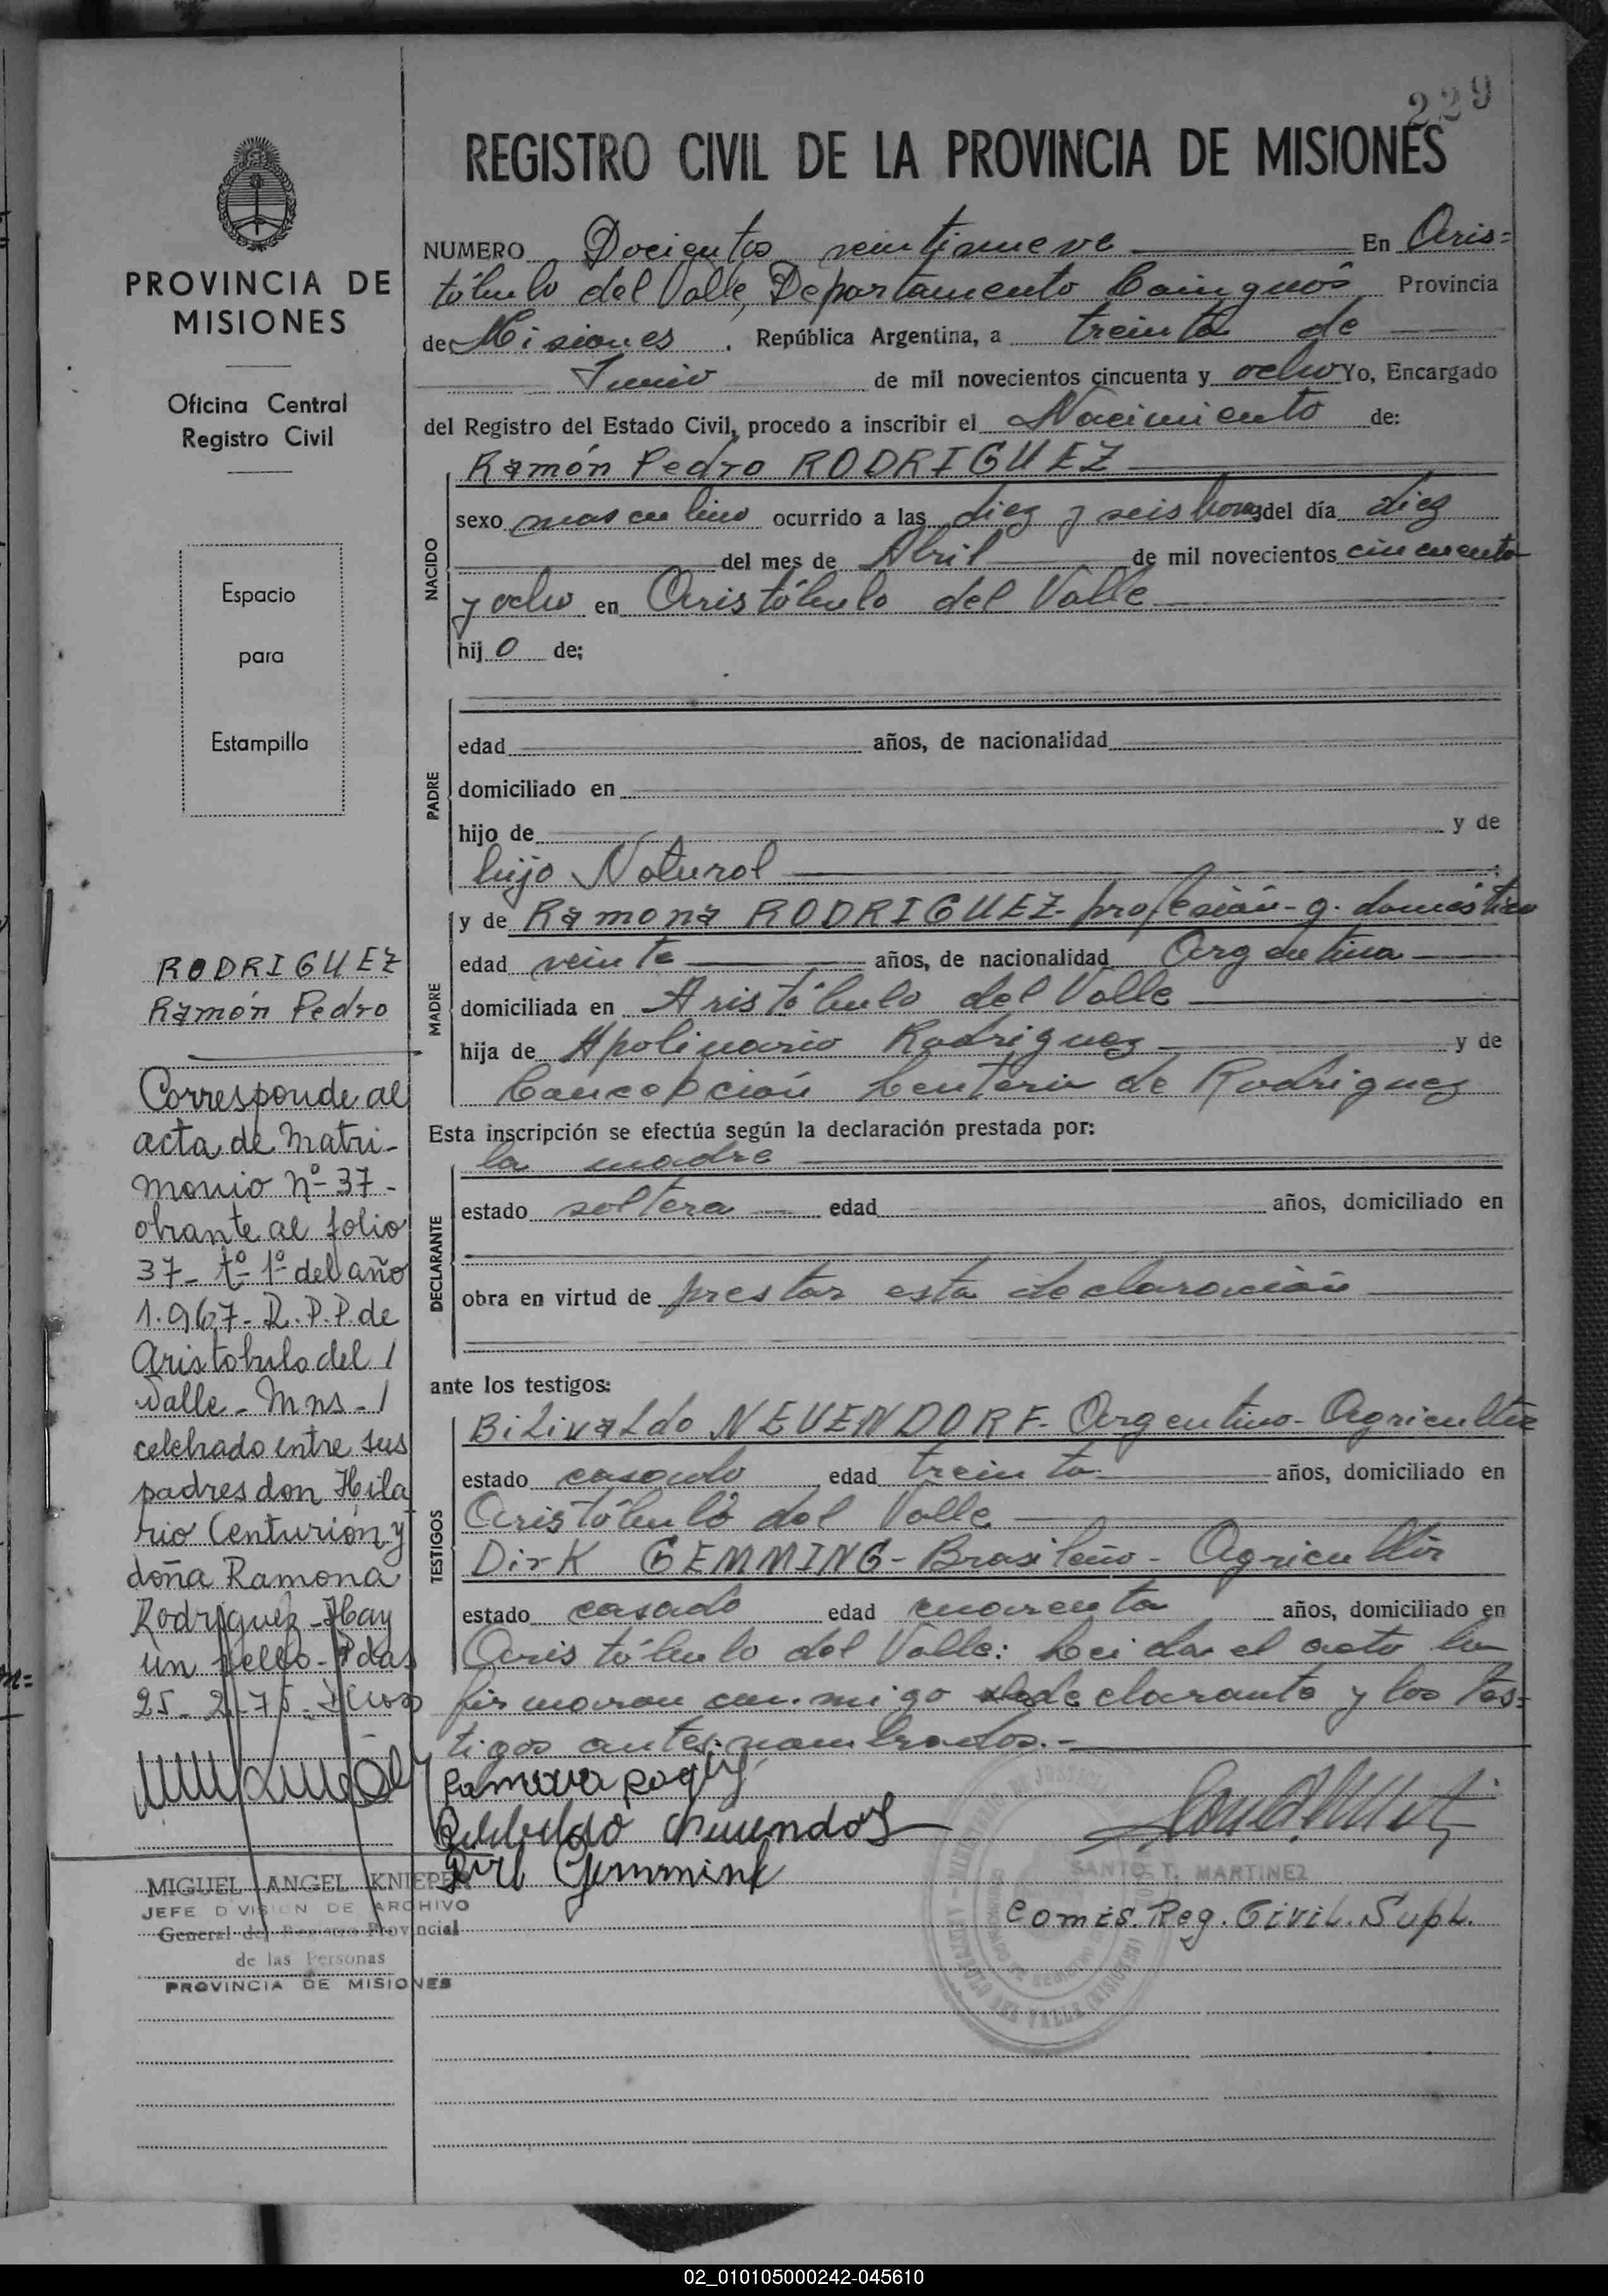 229
REGISTRO CIVIL DE LA PROVINCIA DE MISIONES
PROVINCIA DE
MISIONES
Oficina Central
Registro Civil
Espacio
para
Estampilla
RODRIGUEZ
Ramón Pedro
Corresponde al
acta de Matri-
monio Nº 37-
obrante al folio
37- tº 1º del año
1.967- R.P.P. de
Aristobulo del /
Valle - Mns - /
celebrado entre sus
padres don Hila
rio Centurión y
doña Ramona
Rodriguez - Hay
un sello - Pdas
25-2-75-
MIGUEL ANGEL KNIEPER
JEFE DIVISION DE ARCHIVO
General del Registro Provincial
de las Personas
PROVINCIA DE MISIONES
NUMERO Docientos veintinueve En Aris=
tóbulo del Valle, Departamento Cainguás Provincia
de Misiones, República Argentina, a treinta de
Junio de mil novecientos cincuenta y ocho Yo, Encargado
del Registro del Estado Civil, procedo a inscribir el Nacimiento de:
NACIDO
Ramón Pedro RODRIGUEZ
sexo masculino ocurrido a las diez y seis horas del día diez
del mes de Abril de mil novecientos cincuenta
y ocho en Aristóbulo del Valle
hij o de;
PADRE
edad años, de nacionalidad
domiciliado en
hijo de y de
hijo Natural
MADRE
y de Ramona RODRIGUEZ- profesión- q. domésticos
edad veinte años, de nacionalidad Argentina
domiciliada en Aristóbulo del Valle
hija de Apolinario Rodriguez y de
Concepción Centurin de Rodriguez
Esta inscripción se efectúa según la declaración prestada por:
DECLARANTE
la madre
estado soltera edad años, domiciliado en
obra en virtud de prestar esta declaración
ante los testigos:
TESTIGOS
Bilivaldo NEUENDORF- Argentino- Agricultor
estado casado edad treinta años, domiciliado en
Aristóbulo del Valle
Dirk GEMMING- Brasileño- Agricultor
estado casado edad cuarenta años, domiciliado en
Aristóbulo del Valle: Leida el acta la
firmaron conmigo declarante y los tes=
tigos antes nombrados.-
SANTO T. MARTINEZ
Comis. Reg. Civil. Supl.
02_010105000242-045610